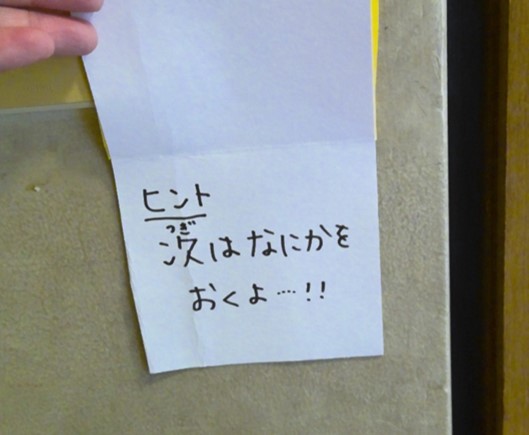 ヒント
つぎ
次はなにかを
おくよ…!!